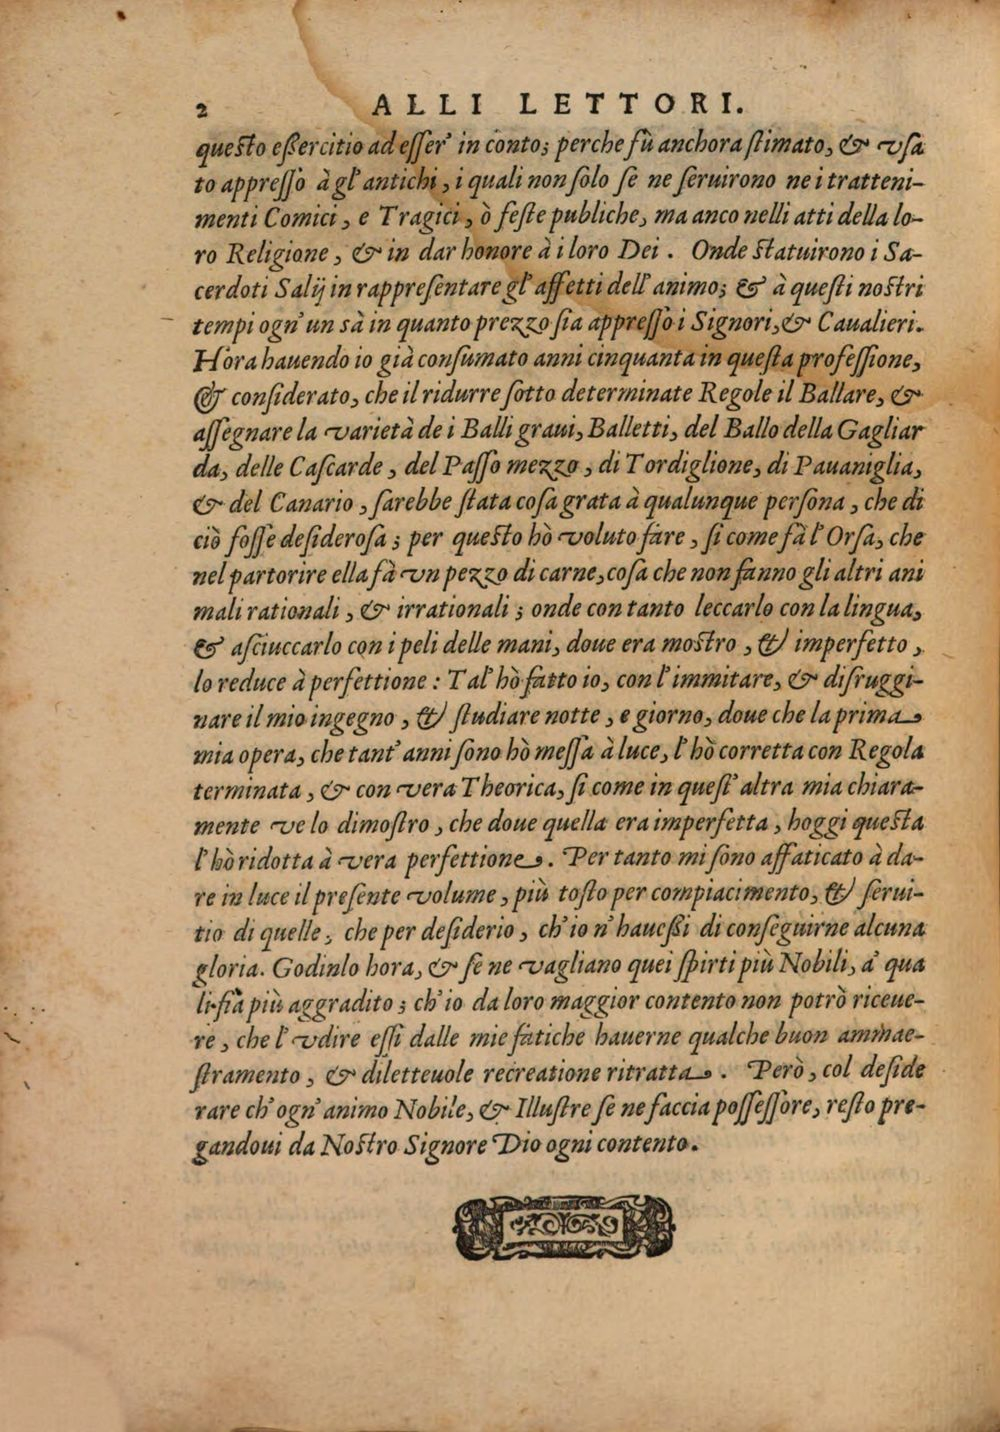 2 ALLI LETTORI.
queſto eßercitio ad eſſer' in conto; perche fù anchora ſtimato, & vſa
to appreſſo à gl'antichi, i quali non ſolo ſe ne ſeruirono ne i tratteni-
menti Comici, e Tragici, ò feſte publiche, ma anco nelli atti della lo-
ro Religione, & in dar honore à i loro Dei. Onde ſtatuirono i Sa-
cerdoti Salij in rappreſentare gl'affetti dell'animo; & à queſti noſtri
tempi ogn'un sà in quanto prezzo ſia appreſſo i Signori, & Caualieri.
Hora hauendo io già conſumato anni cinquanta in queſta profeſſione,
& conſiderato, che il ridurre ſotto determinate Regole il Ballare, &
aſſegnare la varietà de i Balli graui, Balletti, del Ballo della Gagliar
da, delle Caſcarde, del Paſſo mezzo, di Tordiglione, di Pauaniglia,
& del Canario, ſarebbe ſtata coſa grata à qualunque perſona, che di
ciò foſſe deſideroſa; per queſto hò voluto fare, ſi come fà l'Orſa, che
nel partorire ella fà vn pezzo di carne, coſa che non fanno gli altri ani
mali rationali, & irrationali; onde con tanto leccarlo con la lingua,
& aſciuccarlo con i peli delle mani, doue era moſtro, & imperfetto,
lo reduce à perfettione: Tal'hò fatto io, con l'immitare, & diſruggi-
nare il mio ingegno, & ſtudiare notte, e giorno, doue che la prima
mia opera, che tant'anni ſono hò meſſa à luce, l'hò corretta con Regola
terminata, & con vera Theorica, ſi come in queſt'altra mia chiara-
mente ve lo dimoſtro, che doue quella era imperfetta, hoggi queſta
l'hò ridotta à vera perfettione. Per tanto mi ſono affaticato à da-
re in luce il preſente volume, più toſto per compiacimento, & ſerui-
tio di quelle, che per deſiderio, ch'io n'haueßi di conſeguirne alcuna
gloria. Godinlo hora, & ſe ne vagliano quei ſpirti più Nobili, a' qua
li ſia più aggradito; ch'io da loro maggior contento non potrò riceue-
re, che l'vdire eſſi dalle mie fatiche hauerne qualche buon ammae-
ſtramento, & diletteuole recreatione ritratta. Però, col deſide
rare ch'ogn'animo Nobile, & Illuſtre ſe ne faccia poſſeſſore, reſto pre-
gandoui da Noſtro Signore Dio ogni contento.